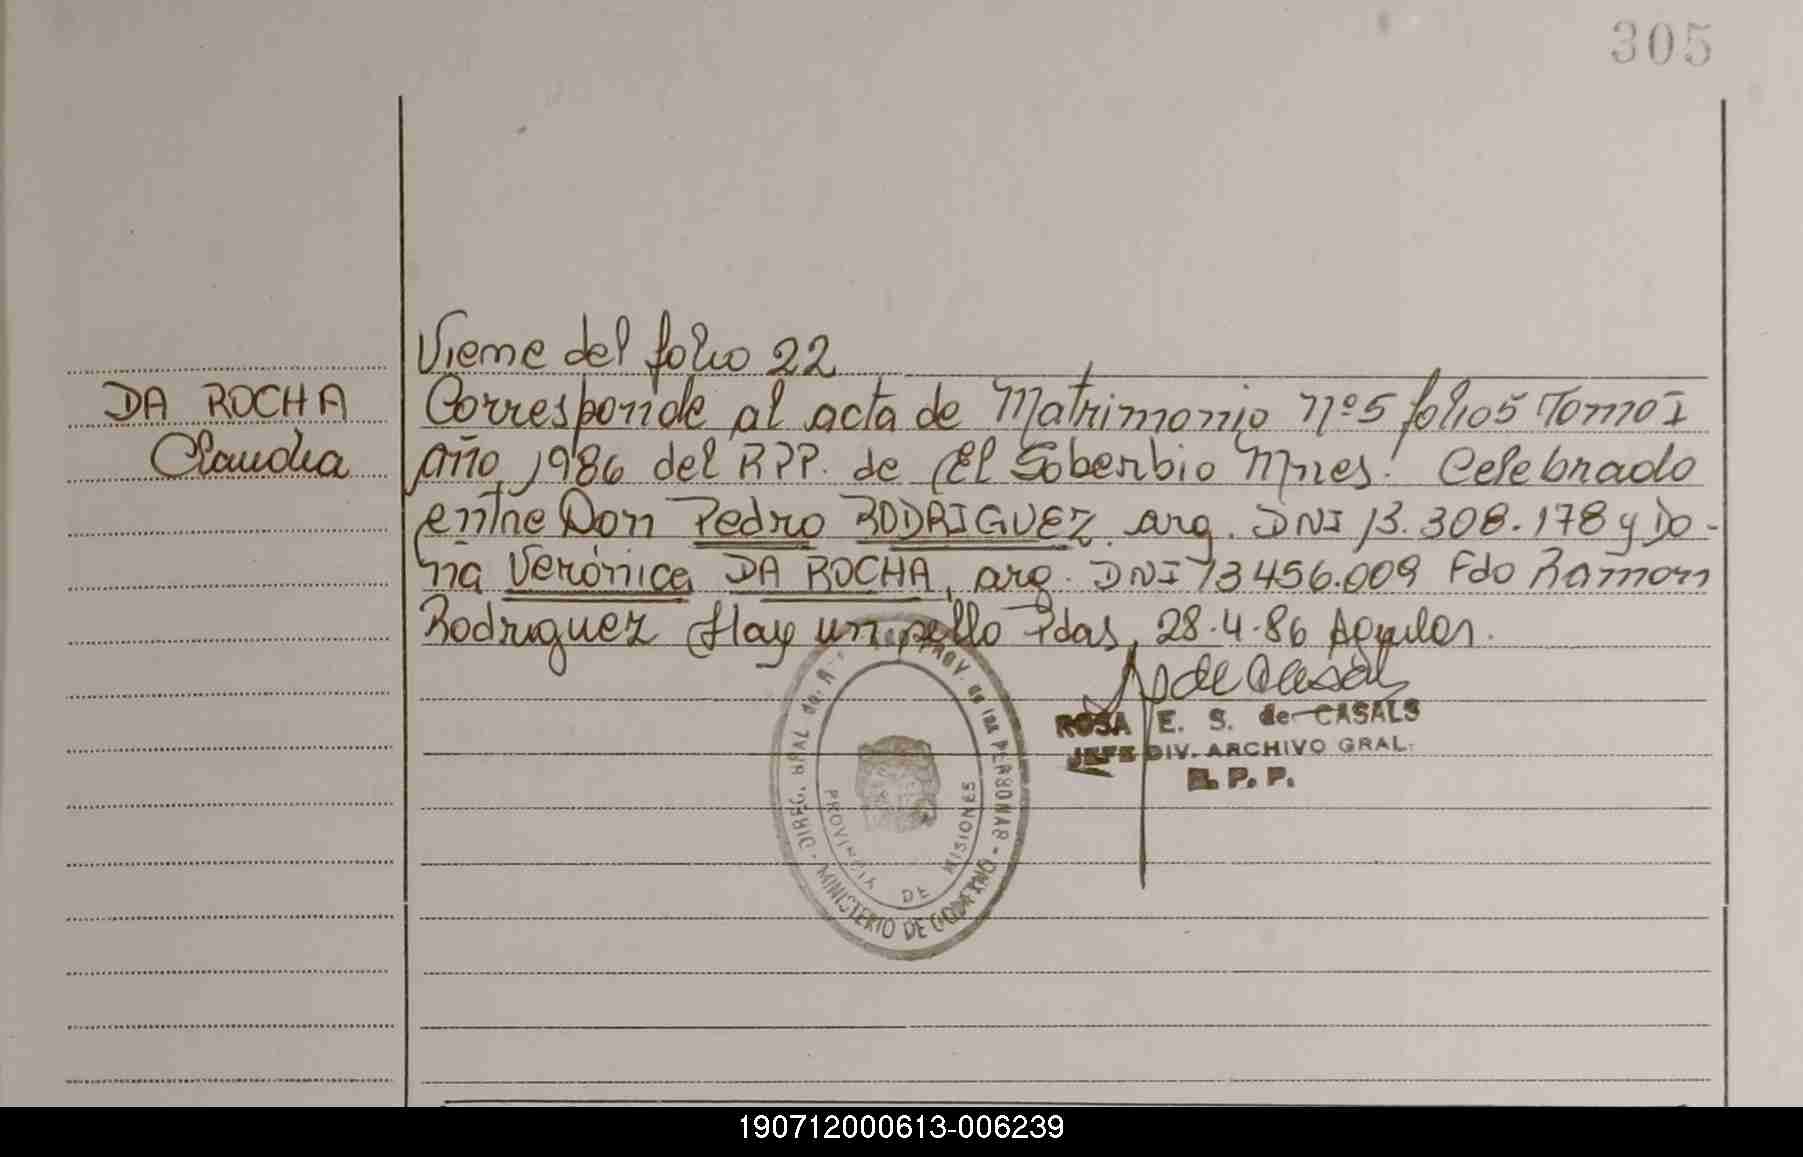 305
Viene del folio 22
DA ROCHA
Claudia
Corresponde al acta de Matrimonio Nº5 folio 5 Tomo I
Año 1986 del R.P.P. de El Soberbio Mnes. Celebrado
entre Don Pedro RODRIGUEZ. arg. DNI 13.308.178 y Do-
ña Verónica DA ROCHA, arg. DNI 13456.009 Fdo Ramon
Rodriguez Hay un sello Pdas, 28.4.86 Aguilar.
ROSA E. S. de CASALS
JEFE DIV. ARCHIVO GRAL.
R. P. P.
PROV. de las PERSONAS - MINISTERIO DE GOBIERNO -
PROVINCIA DE MISIONES
190712000613-006239